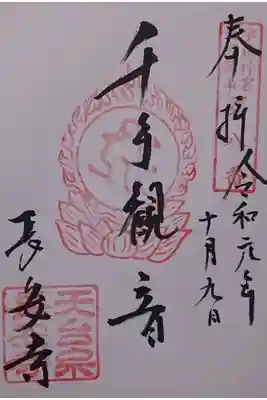 奉拝 令和元年
十月九日
千手観音
長安寺
天台宗